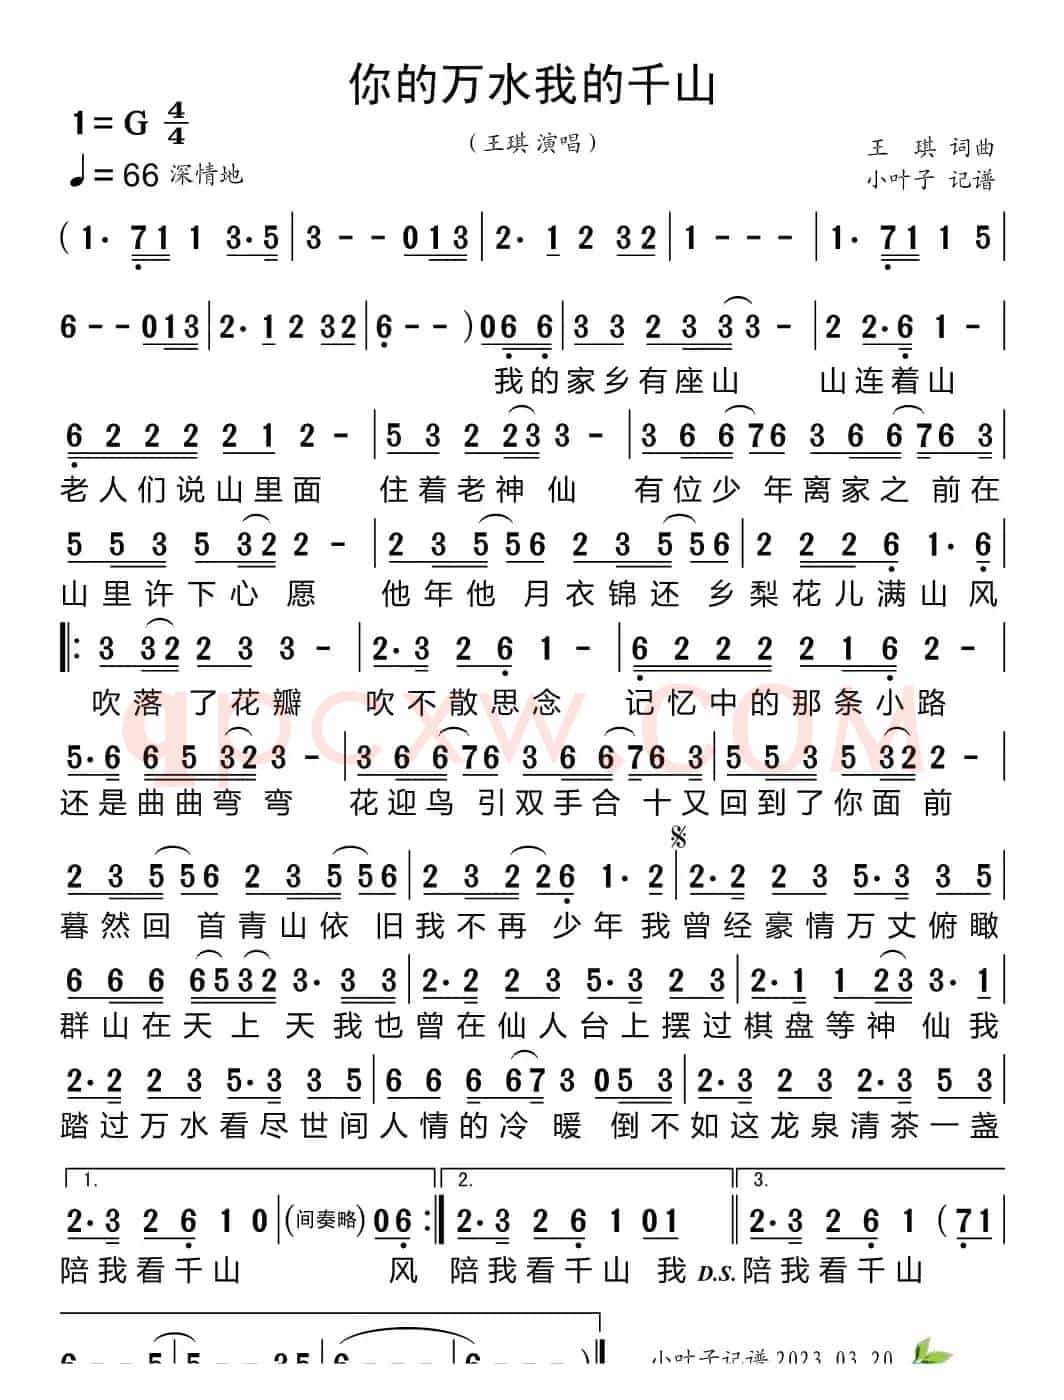 你的万水我的千山
1=G 4/4
（王琪 演唱）
王 琪 词曲
♩=66 深情地
小叶子 记谱
(1· 71 1 3·5|3--013|2·1 2 32|1---|1· 71 1 5|
6--013|2·1 2 32|6--)06 6|3 3 2 3 33-|2 2·6 1-|
我的家乡有座山 山连着山
6 2 2 2 2 1 2-|5 3 2 23 3-|3 6 676 3 6 676 3|
老人们说山里面 住着老神 仙 有位少 年离家之 前在
5 5 3 5 32 2-|2 3 556 2 3 556|2 2 2 6 1·6|
山里许下心 愿 他年他 月衣锦还 乡梨花儿满山风
‖:3 32 2 3 3-|2·3 2 6 1-|6 2 2 2 2 1 6 2-|
吹落 了花瓣 吹不散思念 记忆中的那条小路
qpcxw.COM
5·6 6 5 32 3-|3 6 676 3 6 676 3|5 5 3 5 32 2-|
还是曲曲弯 弯 花迎鸟 引双手合 十又回到了你面 前
2 3 556 2 3 556|2 3 2 26 1·2|2·2 2 3 5·3 3 5|
暮然回 首青山依 旧我不再 少年我曾经豪情万丈俯瞰
6 6 6 6532 3·3 3|2·2 2 3 5·3 2 3|2·1 1 23 3·1|
群山在天上 天我也曾在仙人台上摆过棋盘等神 仙我
2·2 2 3 5·3 3 3|6 6 6 67 3 05 3|2·3 2 3 5 3|
踏过万水看尽世间人情的冷 暖 倒不如这龙泉清茶一盏
1. 2. 3.
2·3 2 6 1 0|(间奏略) 06:‖2·3 2 6 1 01‖2·3 2 6 1 (71|
陪我看千山 风 陪我看千山 我 D.S. 陪我看千山
小叶子记谱2023.03.20